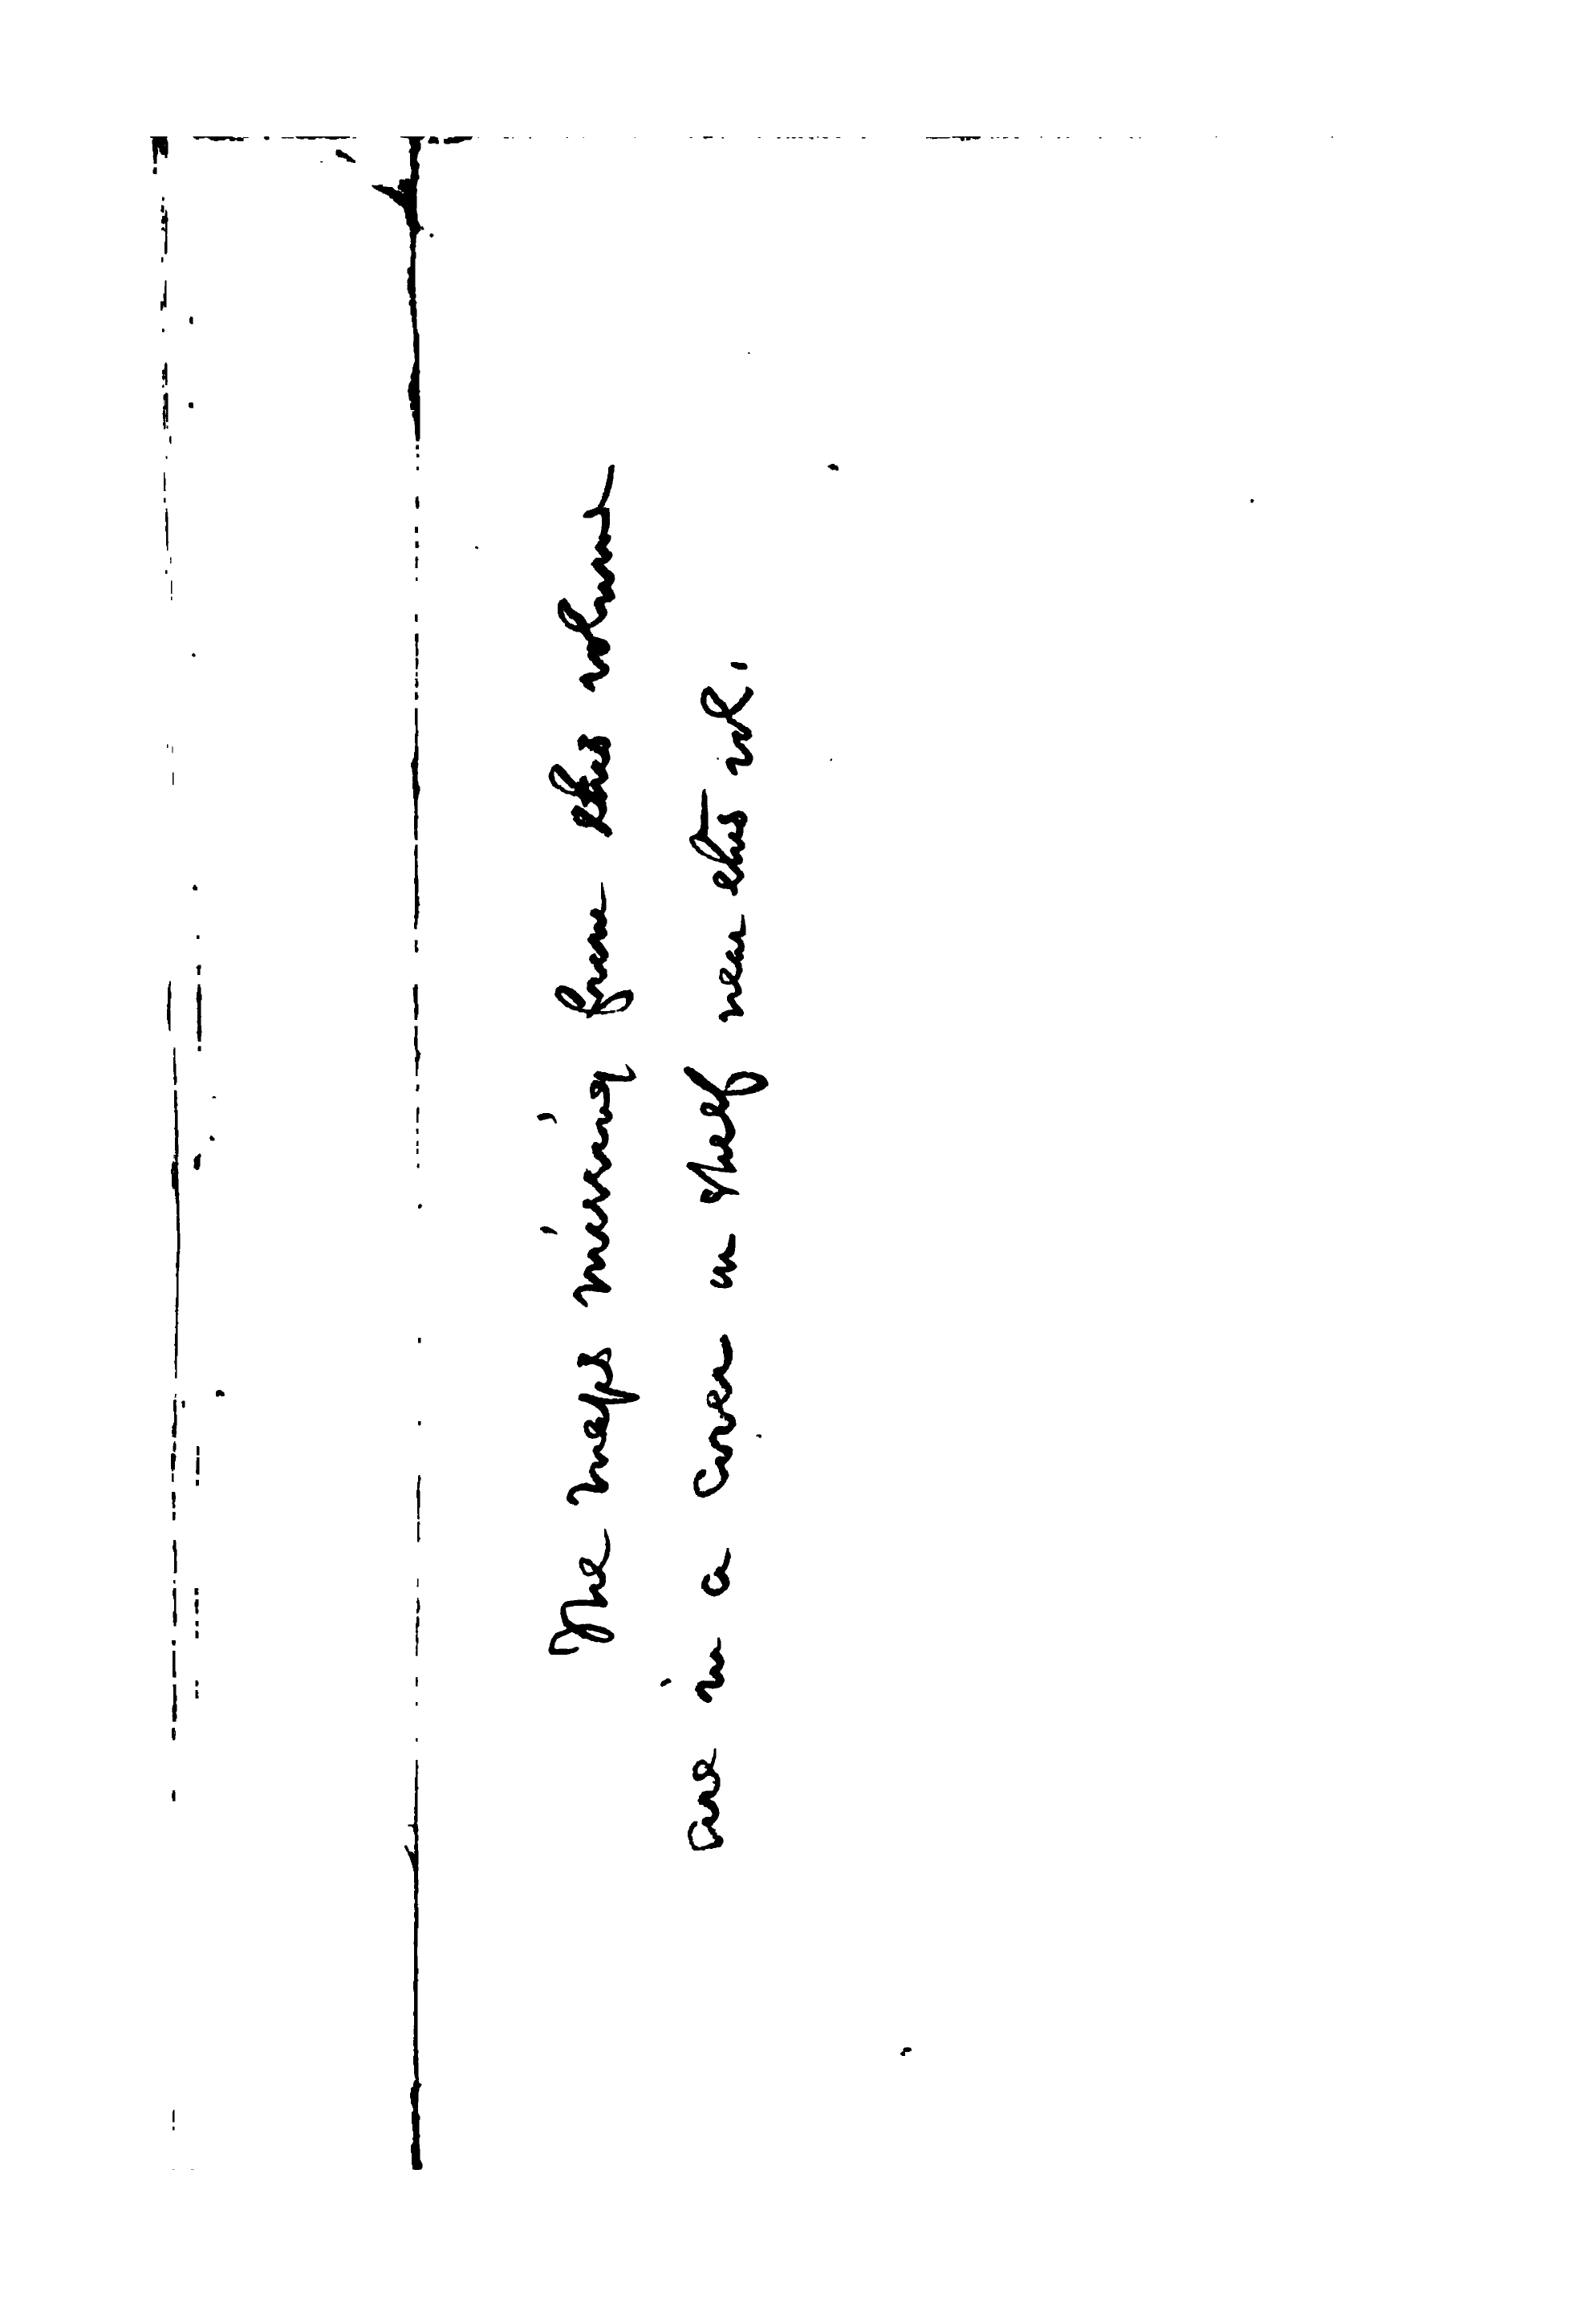 The maps missing from this volume
are in a cover on shelf near this vol.